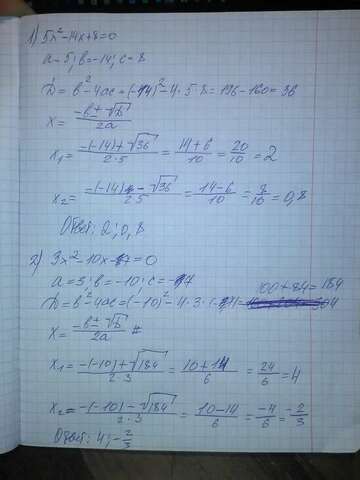 1) 5x²-14x+8=0
a=5; в=-14; c=8
D=в²-4ac=(-14)²-4·5·8=196-160=36
x= -в±√D / 2a
x₁= -(-14)+√36 / 2·5 = 14+6 / 10 = 20/10 = 2
x₂= -(-14)-√36 / 2·5 = 14-6 / 10 = 8/10 = 0,8
Ответ: 2; 0,8
2) 3x²-10x-7=0
a=3; в=-10; c=-7
100+84=184
D=в²-4ac=(-10)²-4·3·(-7)=
x= -в±√D / 2a
x₁= -(-10)+√184 / 2·3 = 10+14 / 6 = 24/6 = 4
x₂= -(-10)-√184 / 2·3 = 10-14 / 6 = -4/6 = -2/3
Ответ: 4; -2/3